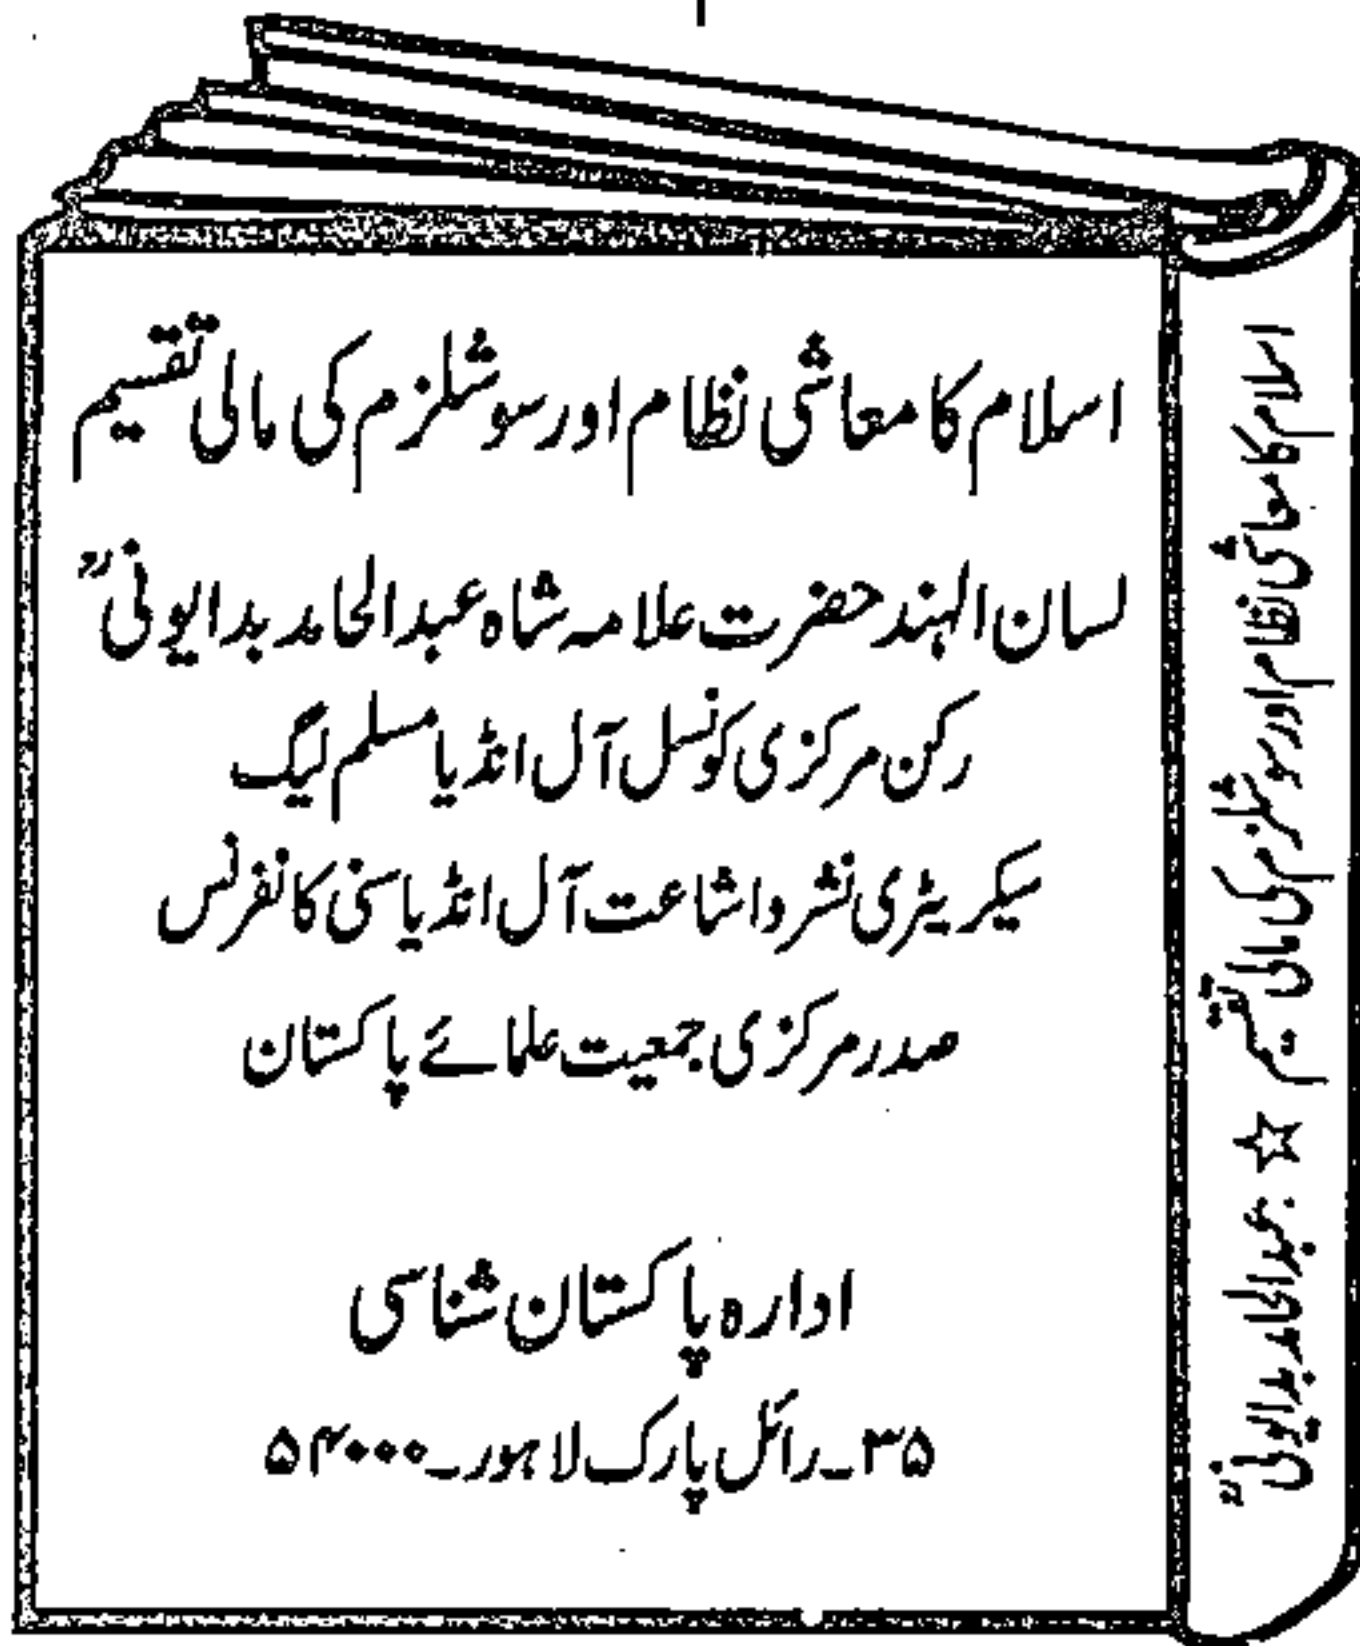 اسلام کا معاشی نظام اور سوشلزم کی مالی تقسیم
لسان الہند حضرت علامہ شاہ عبدالحامد بدایونیؒ
رکن مرکزی کونسل آل انڈیا مسلم لیگ
سیکریٹری نشر و اشاعت آل انڈیا سنی کانفرنس
صدر مرکزی جمعیت علمائے پاکستان
ادارہ پاکستان شناسی
۳۵۔رائل پارک لاہور۔۵۴۰۰۰
اسلام کا معاشی نظام اور سوشلزم کی مالی تقسیم ☆ عبدالحامد بدایونیؒ